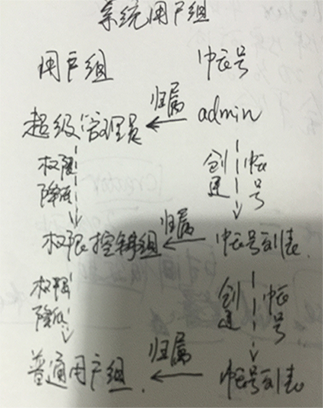 系统用户组
用户组 帐号
超级管理员 归属 admin
权限降低 创建 帐号
权限控制组 归属 帐号列表
权限降低 创建 帐号
普通用户组 归属 帐号列表